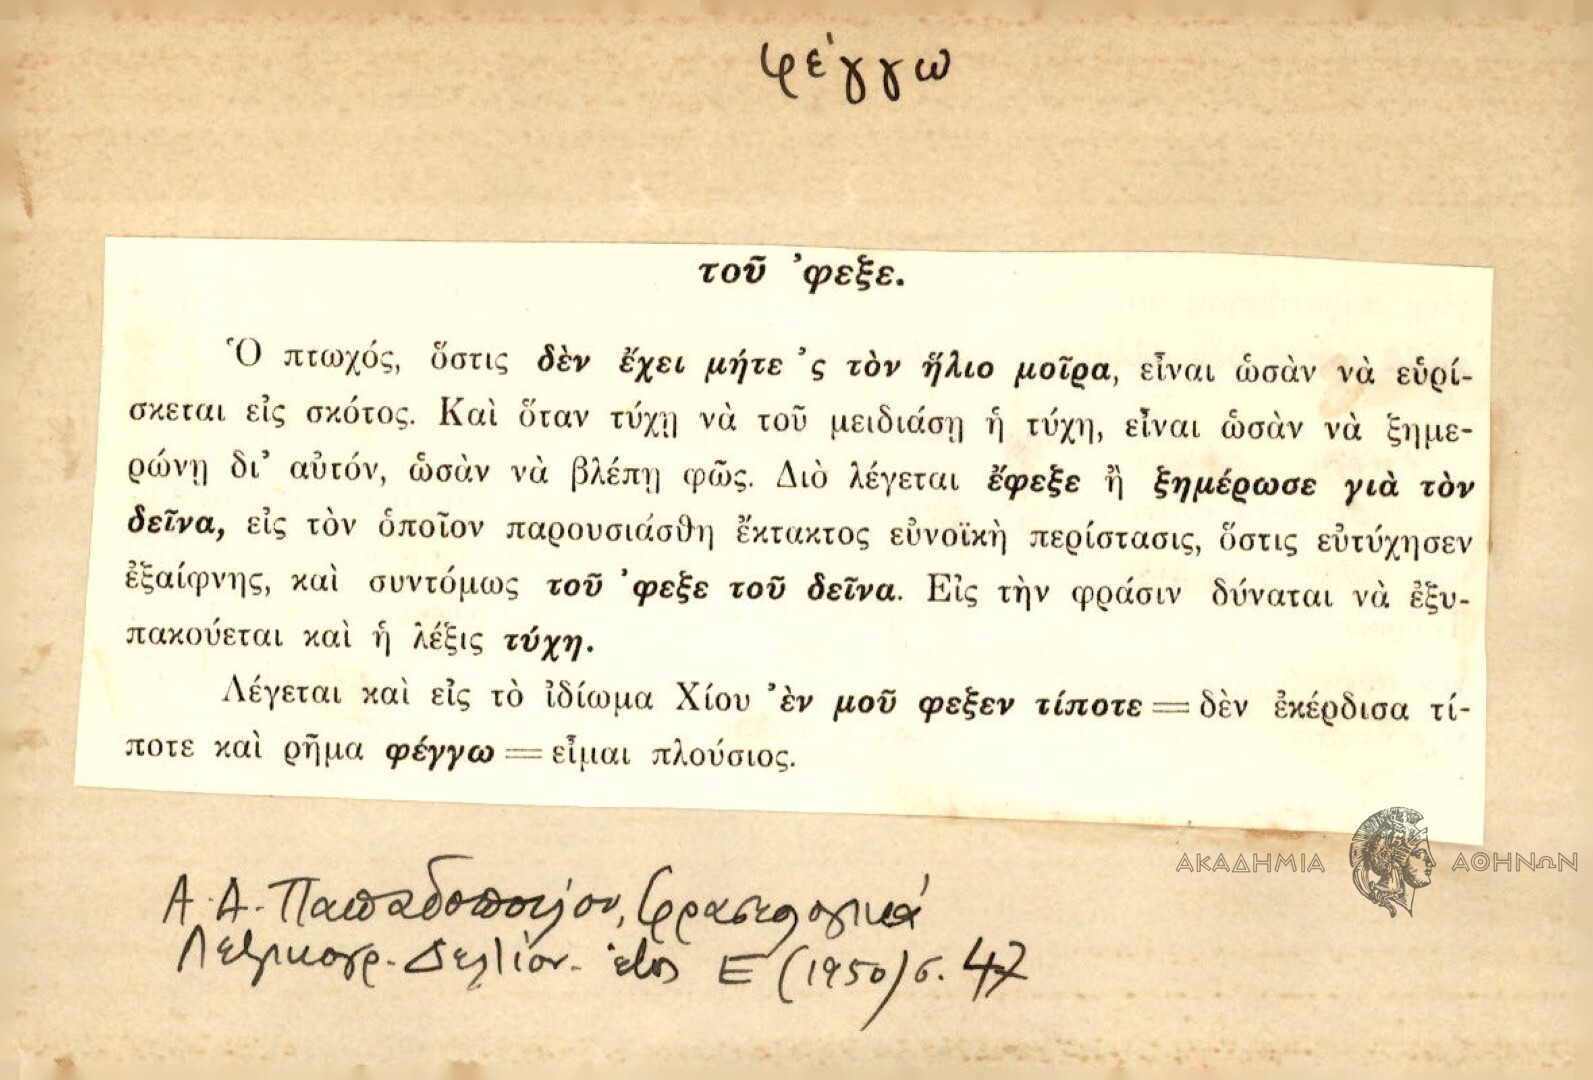 φέγγω
τοῦ ’φεξε.
Ὁ πτωχός, ὅστις δὲν ἔχει μήτε ’ς τὸν ἥλιο μοῖρα, εἶναι ὡσὰν νὰ εὑρί-
σκεται εἰς σκότος. Καὶ ὅταν τύχῃ νὰ τοῦ μειδιάσῃ ἡ τύχη, εἶναι ὡσὰν νὰ ξημε-
ρώνῃ δι’ αὐτόν, ὡσὰν νὰ βλέπῃ φῶς. Διὸ λέγεται ἔφεξε ἢ ξημέρωσε γιὰ τὸν
δεῖνα, εἰς τὸν ὁποῖον παρουσιάσθη ἔκτακτος εὐνοϊκὴ περίστασις, ὅστις εὐτύχησεν
ἐξαίφνης, καὶ συντόμως τοῦ ’φεξε τοῦ δεῖνα. Εἰς τὴν φράσιν δύναται νὰ ἐξυ-
πακούεται καὶ ἡ λέξις τύχη.
Λέγεται καὶ εἰς τὸ ἰδίωμα Χίου ’ὲν μοῦ φεξεν τίποτε = δὲν ἐκέρδισα τί-
ποτε καὶ ρῆμα φέγγω = εἶμαι πλούσιος.
ΑΚΑΔΗΜΙΑ ΑΘΗΝΩΝ
Α. Α. Παπαδοπούλου, Φρασεολογικά
Λεξικογρ. Δελτίον. ἔτος Ε (1950) σ. 47